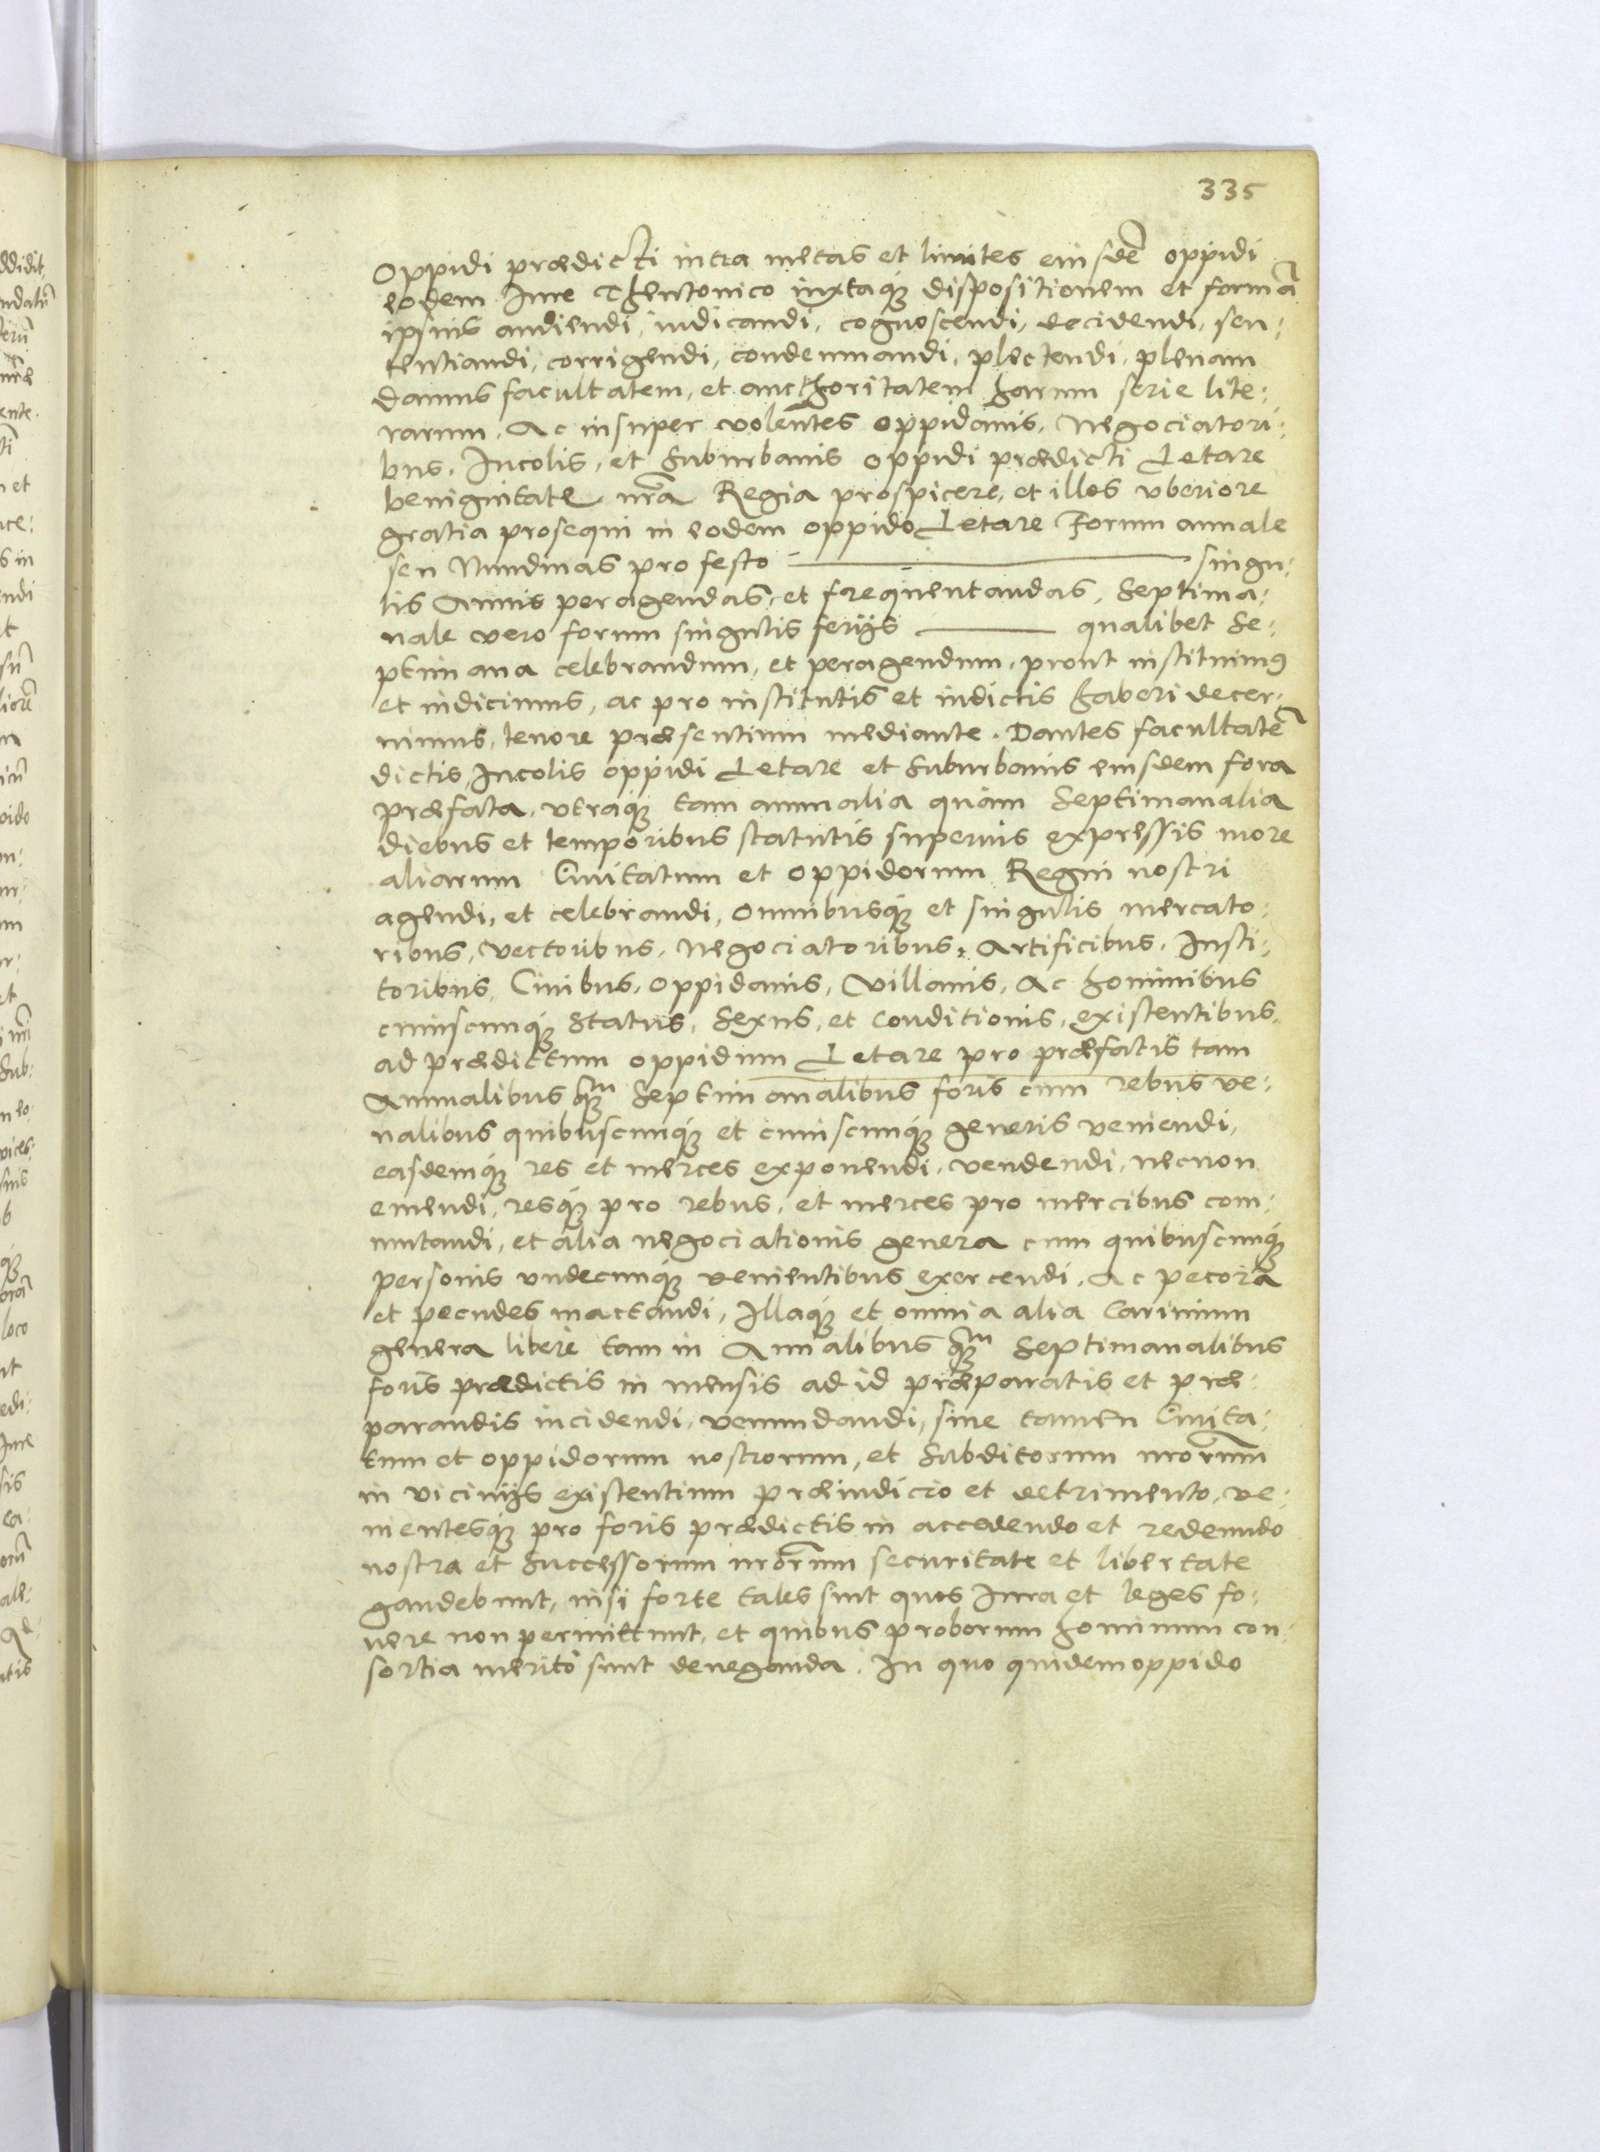 335
Oppidi prædicti intra metas et limites eiusdē oppidi
eodem Iure Theutonico iuxtaq3 dispositionem et formā
ipsius audiendi, iudicandi, cognoscendi, decidendi, sen:
tentiandi, corrigendi, condemnandi, plectendi, plenam
damus facultatem, et authoritatem harum serie lite:
rarum. Ac insuper volentes oppidanis, Negociatori:
bus, Incolis, et Suburbanis oppidi prædicti Letare
benignitate nrā Regia prospicere, et illos vberiore
gratia prosequi in eodem oppido Letare Forum annale
seu Nundinas pro festo ——— singu:
lis Annis peragendas, et frequentandas, Septima:
nale vero forum singulis ferijs ——— qualibet Se:
ptimana celebrandum, et peragendum, prout instituimus
et indicimus, ac pro institutis et indictis haberi decer:
nimus, tenore præsentium mediante. Dantes facultatē
dictis Incolis oppidi Letare et Suburbanis eiusdem fora
præfata, vtraq3 tam annualia quàm Septimanalia
diebus et temporibus statutis superius expressis more
aliarum Ciuitatum et oppidorum Regni nostri
agendi, et celebrandi, omnibusq3 et singulis mercato:
ribus, vectoribus, Negociatoribus, Artificibus, Insti:
toribus, Ciuibus, oppidanis, Villanis, Ac hominibus
cuiuscunq3 Status, Sexus, et Conditionis, existentibus,
ad prædictum oppidum Letare pro præfatis tam
Annualibus q3m Septimanalibus foris cum rebus ve:
nalibus quibuscunq3 et cuiuscunq3 generis veniendi,
easdemq3 res et merces exponendi, vendendi, necnon
emendi, resq3 pro rebus, et merces pro mercibus com:
mutandi, et alia negociationis genera cum quibuscunq3
personis vndecunq3 venientibus exercendi, Ac pecora
et pecudes mactandi, Illaq3 et omnia alia Carnium
genera liberè tam in Annalibus q3m Septimanalibus
foris prædictis in mensis ad id præparatis et præ:
parandis incidendi, venundandi, sine tamen Ciuita:
tum et oppidorum nostrorum, et Subditorum nrōrum
in vicinijs existentium præiudicio et detrimento, ve:
nientesq3 pro foris prædictis in accedendo et redeundo
nostra et Successorum nrōrum securitate et libertate
gaudebunt, nisi forte tales sint quos Iura et leges fo:
uere non permittunt, et quibus proborum hominum con:
sortia meritò sunt deneganda. In quo quidem oppido